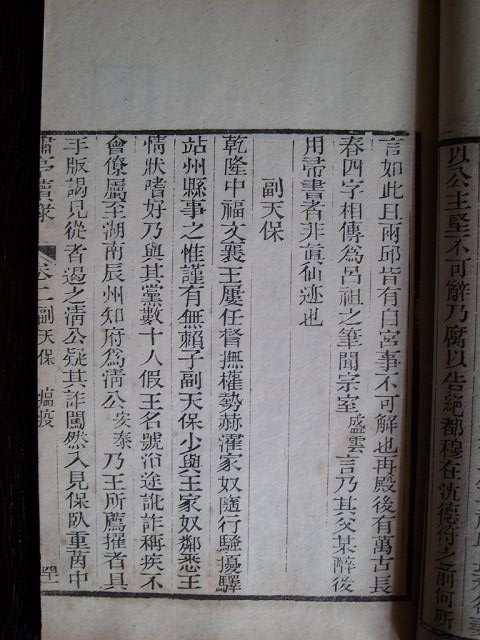 以公主堅不可辭乃腐以告絕都穆在沈德符之前何所
言如此且兩邱皆有自宮事不可解也再殿後有萬古長
春四字相傳爲呂祖之筆聞宗室盛雲言乃其父某醉後
用帚書者非眞仙迹也
副天保
乾隆中福文襄王屢任督撫權勢赫濯家奴隨行騷擾驛
站州縣事之惟謹有無賴子副天保少與王家奴鄰悉王
情狀嗜好乃與其黨數十人假王名號沿途訛詐稱疾不
會僚屬至湖南辰州知府爲淸公安泰乃王所薦擢者具
手版謁見從者遏之淸公疑其詐闖然入見保臥重茵中
嘯亭續錄 卷二副天保 瘟疫